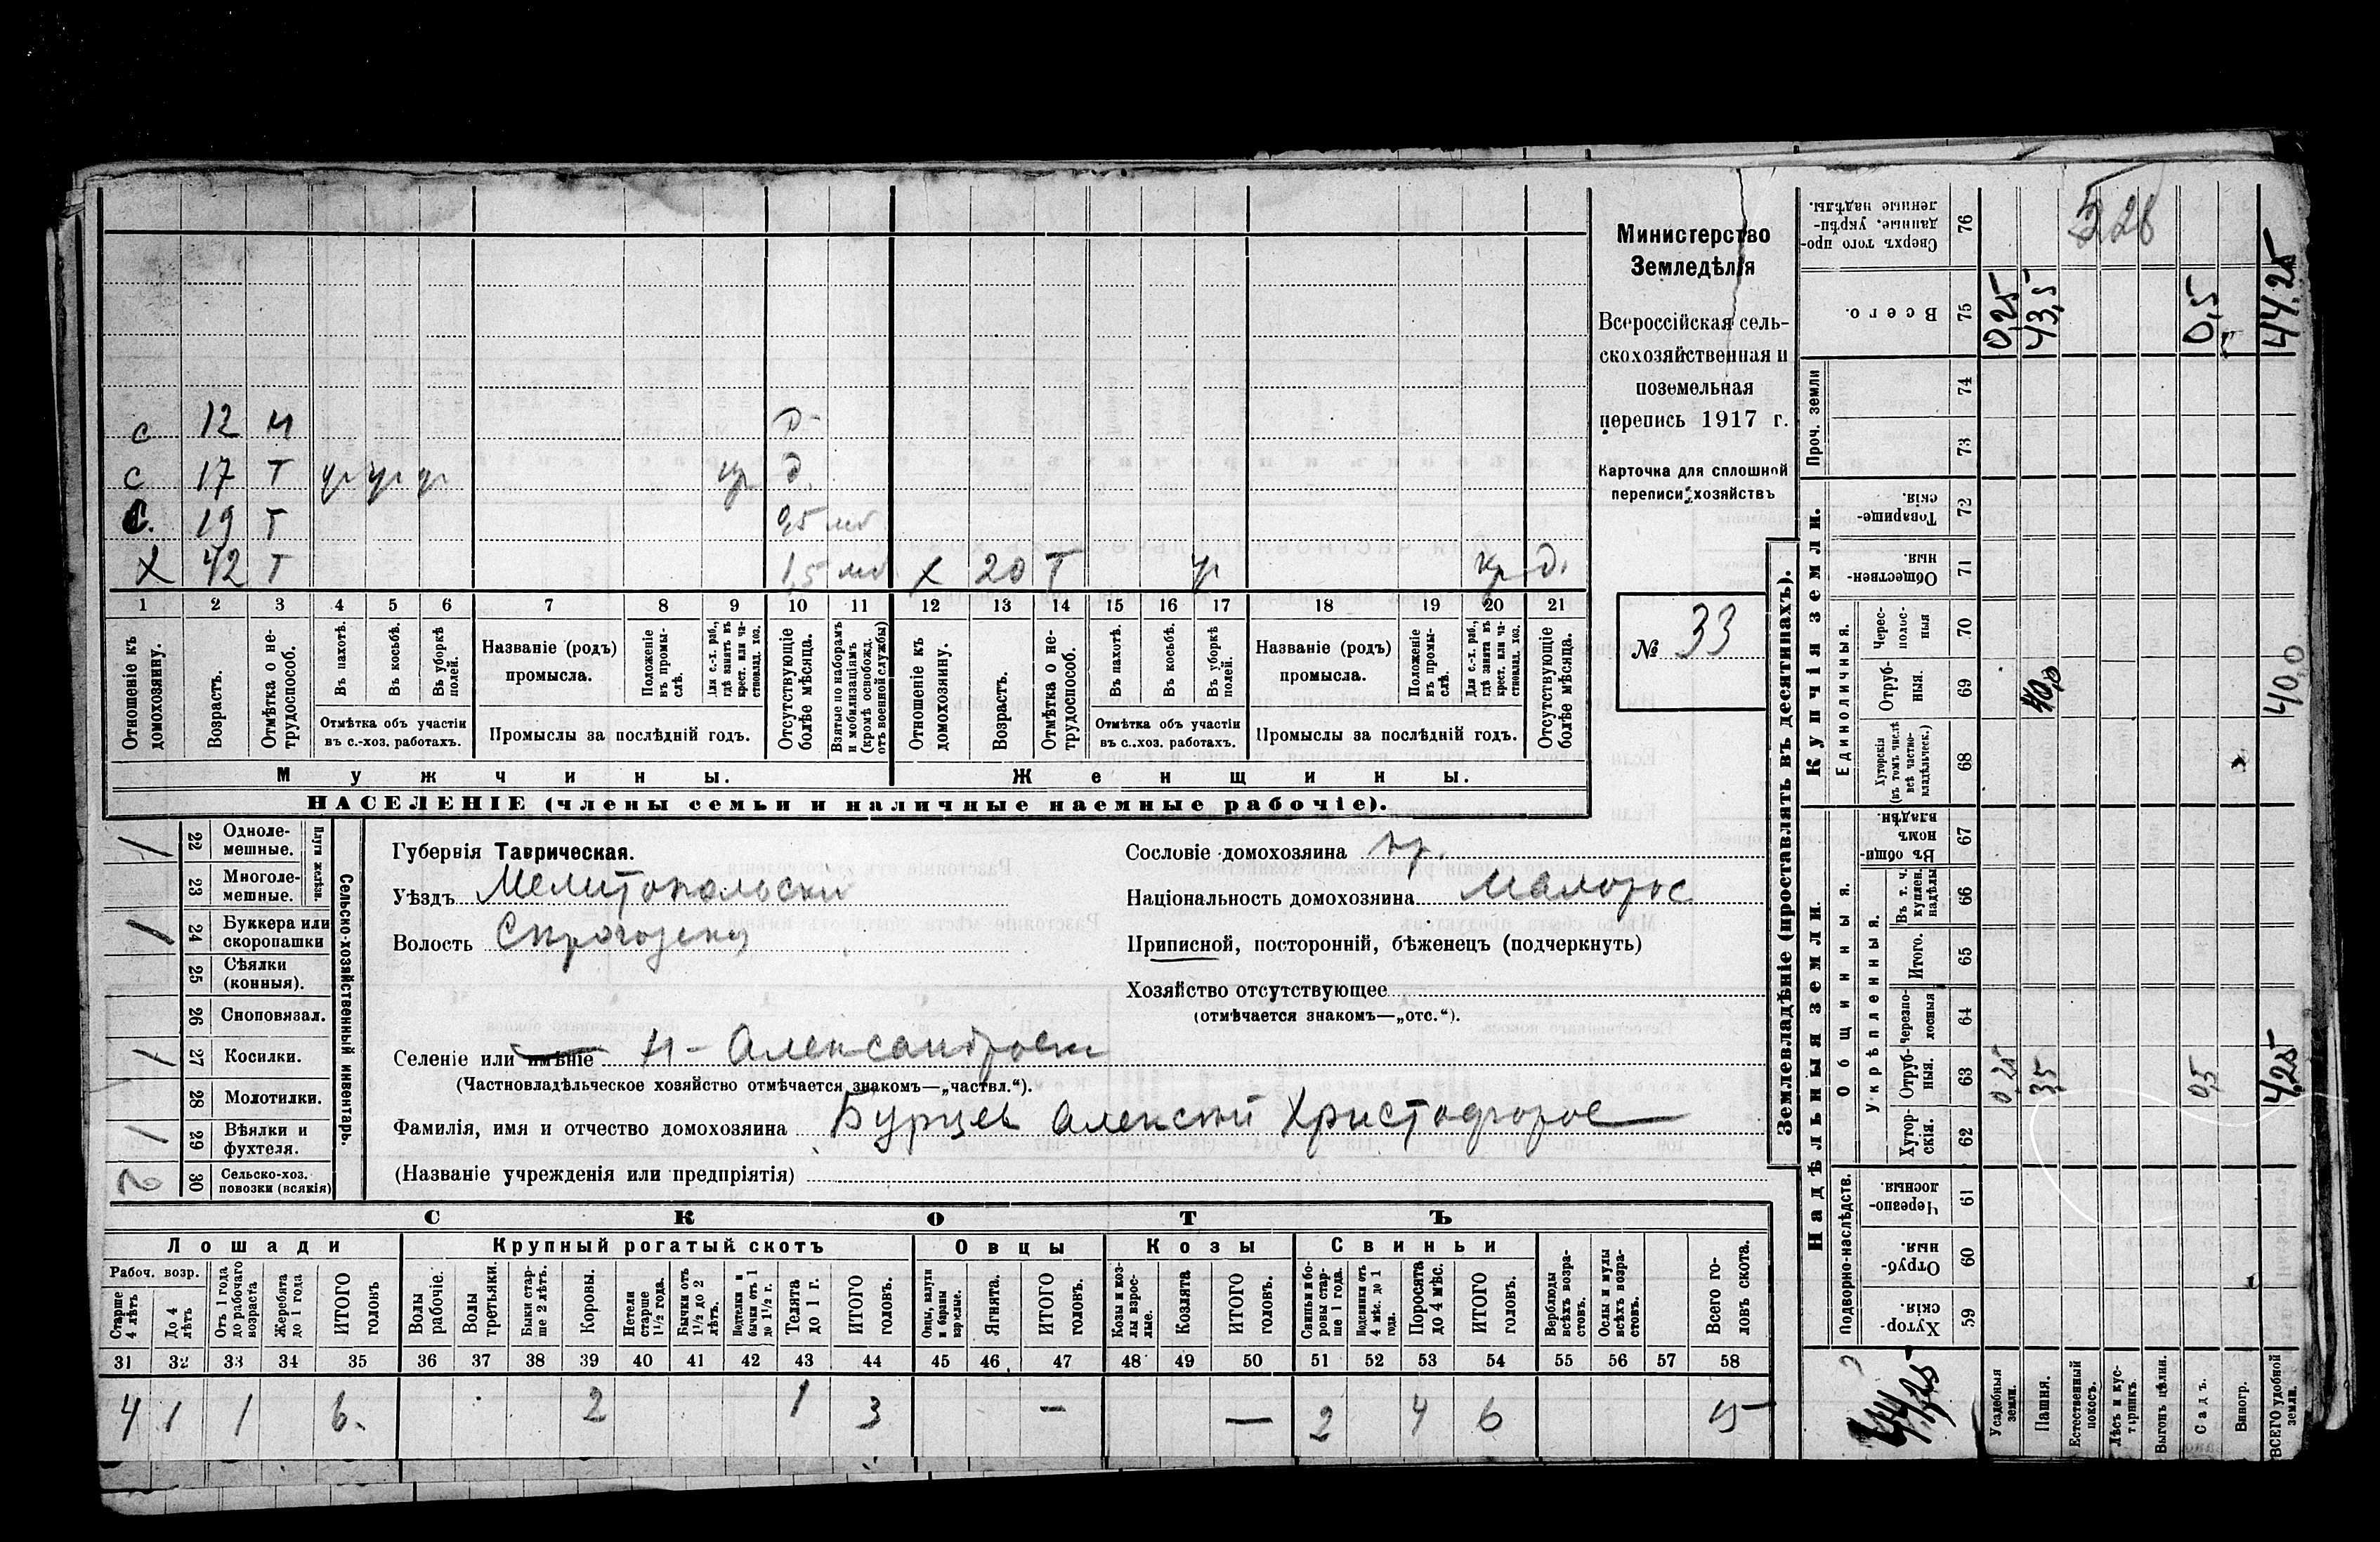 Министерство
Земледѣлія
Всероссійская сель-
скохозяйственная и
поземельная
перепись 1917 г.
Карточка для сплошной
переписи хозяйствъ
№ 33
с 12 н
с 17 т
с. 19 т
х 42 т 1,5 х 20 т
1 2 3 4 5 6 7 8 9 10 11 12 13 14 15 16 17 18 19 20 21
Отношеніе къ домохозяину.
Возрастъ.
Отмѣтка о не-трудоспособ.
Въ пахотѣ.
Въ косьбѣ.
Въ уборкѣ полей.
Отмѣтка объ участіи
въ с.-хоз. работахъ.
Названіе (родъ)
промысла.
Положеніе въ промы-слѣ.
Для с.-х. раб., гдѣ занятъ въ крест. или ча-ствовлад. хоз.
Промыслы за послѣдній годъ.
Отсутствующіе болѣе мѣсяца.
Взятые по наборамъ и мобилизаціямъ (кромѣ освобожд. отъ военной службы)
Отношеніе къ домохозяину.
Возрастъ.
Отмѣтка о не-трудоспособ.
Въ пахотѣ.
Въ косьбѣ.
Въ уборкѣ полей.
Отмѣтка объ участіи
въ с.-хоз. работахъ.
Названіе (родъ)
промысла.
Положеніе въ промы-слѣ.
Для с.-х. раб., гдѣ занята въ крест. или ча-ствовлад. хоз.
Промыслы за послѣдній годъ.
Отсутствующіе болѣе мѣсяца.
Мужчины. Женщины.
НАСЕЛЕНІЕ (члены семьи и наличные наемные рабочіе).
Сельско-хозяйственный инвентарь.
Плуги желѣзн.
1 22 Одноле-мешные.
23 Многоле-мешные.
1 24 Буккера или скоропашки
25 Сѣялки (конныя).
26 Сноповязал.
1 27 Косилки.
28 Молотилки.
1 29 Вѣялки и фухтеля.
2 30 Сельско-хоз. повозки (всякія)
Губернія Таврическая.
Уѣздъ Мелитопольски
Волость
Сословіе домохозяина кр.
Національность домохозяина Малорос
Приписной, посторонній, бѣженецъ (подчеркнуть)
Хозяйство отсутствующее
(отмѣчается знакомъ—„отс.“).
Селеніе или имѣніе Н-Александровк
(Частновладѣльческое хозяйство отмѣчается знакомъ—„частвл.“).
Фамилія, имя и отчество домохозяина Бурцев Алексей Христофоров
(Названіе учрежденія или предпріятія)
СКОТЪ
Лошади Крупный рогатый скотъ Овцы Козы Свиньи
Рабоч. возр.
Старше 4 лѣтъ
До 4 лѣтъ
Отъ 1 года до рабочаго возраста
Жеребята до 1 года
ИТОГО головъ
Волы рабочіе.
Волы третьяки.
Быки стар-ше 2 лѣтъ.
Коровы.
Нетели старше 1½ года.
Бычки отъ 1½ до 2 лѣтъ.
Подтелки и бычки отъ 1 до 1½ г.
Телята до 1 г.
ИТОГО головъ.
Овцы, валухи и бараны взрослые.
Ягнята.
ИТОГО головъ.
Козы и коз-лы взрос-лые.
Козлята
ИТОГО головъ.
Свиньи и бо-ровы стар-ше 1 года.
Подсвинки отъ 4 мѣс. до 1 года.
Поросята до 4 мѣс.
ИТОГО головъ.
Верблюды всѣхъ возра-стовъ.
Ослы и мулы всѣхъ возра-стовъ.
Всего го-ловъ скота.
31 32 33 34 35 36 37 38 39 40 41 42 43 44 45 46 47 48 49 50 51 52 53 54 55 56 57 58
4 1 1 6. 2 1 3 — — 2 4 6 15
Землевладѣніе (проставлять въ десятинахъ).
Сверхъ того про-данные, укрѣп-ленные надѣлы. 76
Всего. 75 0,25 43,5 0,5 44,25
Купчія земли.
Проч. земли 74
73
Товарище-скія. 72
Обществен-ныя. 71
Единоличныя.
Черес-полос-ныя 70
Отруб-ныя. 69 40,0 40,0
Хуторскія (въ томъ числѣ всѣ частно-владѣльческ.) 68
Надѣльныя земли.
Общинныя.
Въ общин-номъ владѣн. 67
Укрѣпленныя.
Въ т. ч. куплен. надѣлы 66
Итого. 65
Черезпо-лосныя 64
Отруб-ныя. 63 0,25 3,5 0,5 4,25
Хутор-скія. 62
Подворно-наслѣдств.
Черезпо-лосныя. 61
Отруб-ныя. 60
Хутор-скія. 59
44,25
Усадебныя земли.
Пашня.
Естественный покосъ.
Лѣсъ и кус-тарникъ.
Выгонъ цѣлин.
Садъ.
Виногр.
ВСЕГО удобной земли.